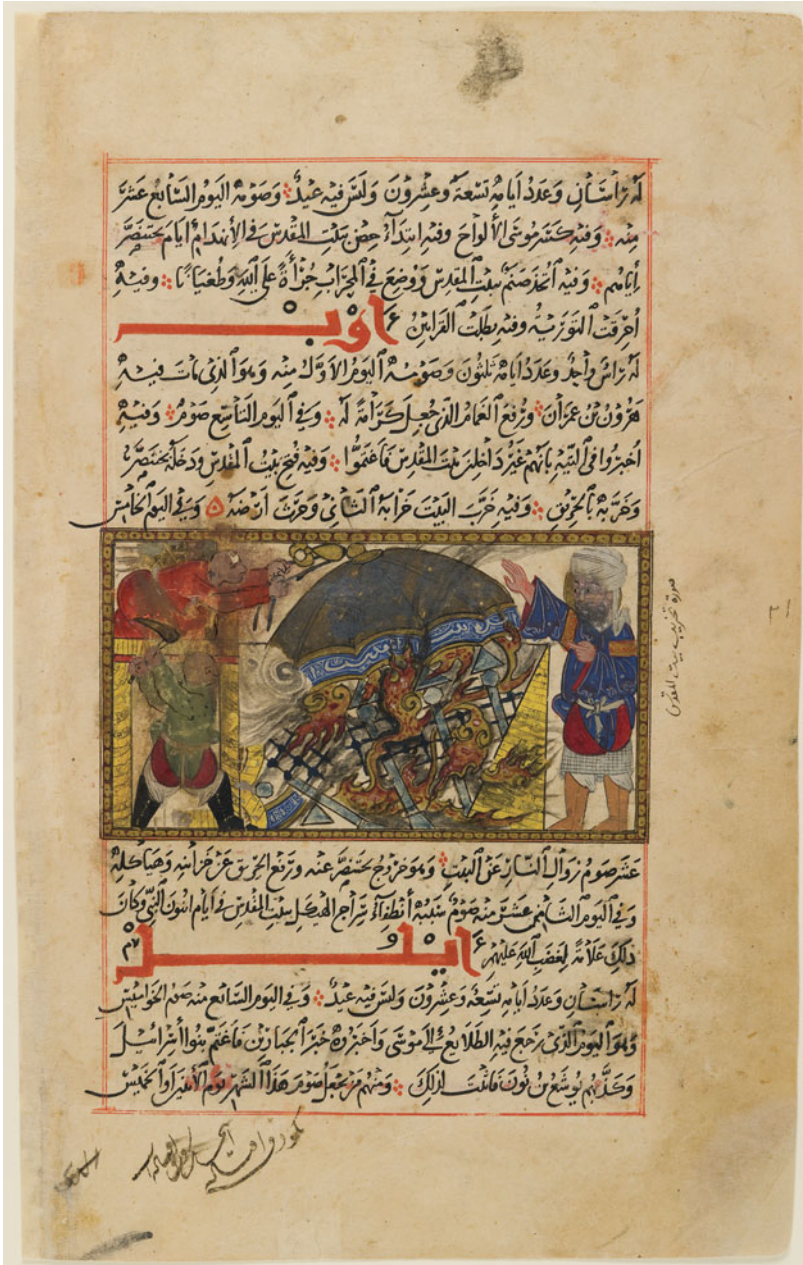 له راسان وعدد ايامه تسعة وعشرون وليس فيه عيد وصومه اليوم السابع عشر
منه وفيه كسر موسى الألواح وفيه ابتداء حصن بيت المقدس في الأنهدام ايام بختنصر
أيامهم وفيه اتخذ صنم ببيت المقدس ووضع في المحراب جرأة على الله وطغيانا وفيه
أحرقت التورية وفيه بطلت القرابين اوب
له راس واحد وعدد ايامه ثلثون وصومه اليوم الأول منه وهو الذي مات فيه
هرون بن عمران ورفع الغمام الذي جعل كرامة له وفي اليوم التاسع صوم وفيه
أخبروا في التيه بانهم غير داخلين بيت المقدس فاغتموا وفيه فتح بيت المقدس ودخله بختنصر
وخربه بالحريق وفيه خرب البيت خرابه الثاني وحرث ارضه وفي اليوم الخامس
صورة تخريب بيت المقدس
عشر صوم زوال النار عن البيت وهو خروج بختنصر عنه ورفع الحريق عن خزائنه وهياكله
وفي اليوم الثامن عشر منه صوم سببه أنطفاء سراج الهيكل ببيت المقدس في أيام النبي وكان
ذلك علامة لغضب الله عليهم ايلل
له راسان وعدد ايامه تسعة وعشرون وليس فيه عيد وفي اليوم السابع منه صوم الجواسيس
وهو اليوم الذي رجع فيه الطلايع الى موسى واخبروه خبر الجبارين فاغتم بنوا أسرائيل
وكذبهم يوشع بن نون لذلك ومنهم من يجعل صوم هذا الشهر يوم الأثنين او الخميس